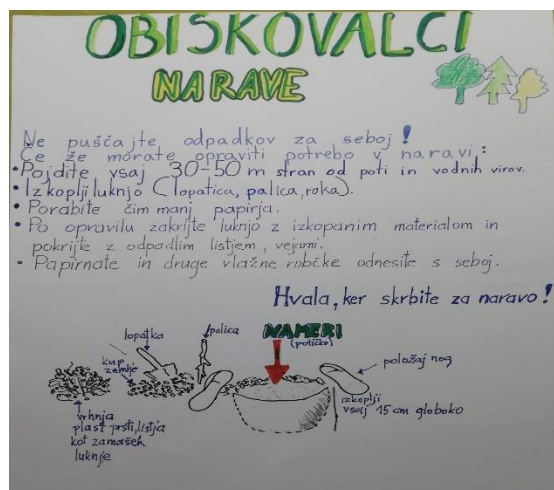 OBISKOVALCI
NARAVE
Ne puščajte odpadkov za seboj!
Če že morate opraviti potrebo v naravi:
• Pojdite vsaj 30-50 m stran od poti in vodnih virov.
• Izkoplji luknjo (lopatica, palica, roka).
• Porabite čim manj papirja.
• Po opravilu zakrijte luknjo z izkopanim materialom in
pokrijte z odpadlim listjem, vejami.
• Papirnate in druge vlažne robčke odnesite s seboj.
Hvala, ker skrbite za naravo!
lopatka
palica
NAMERI
(potičko)
kup
zemlje
položaj nog
vrhnja
plast prsti, listja
kot zamašek
luknje
izkoplji
vsaj 15 cm globoko